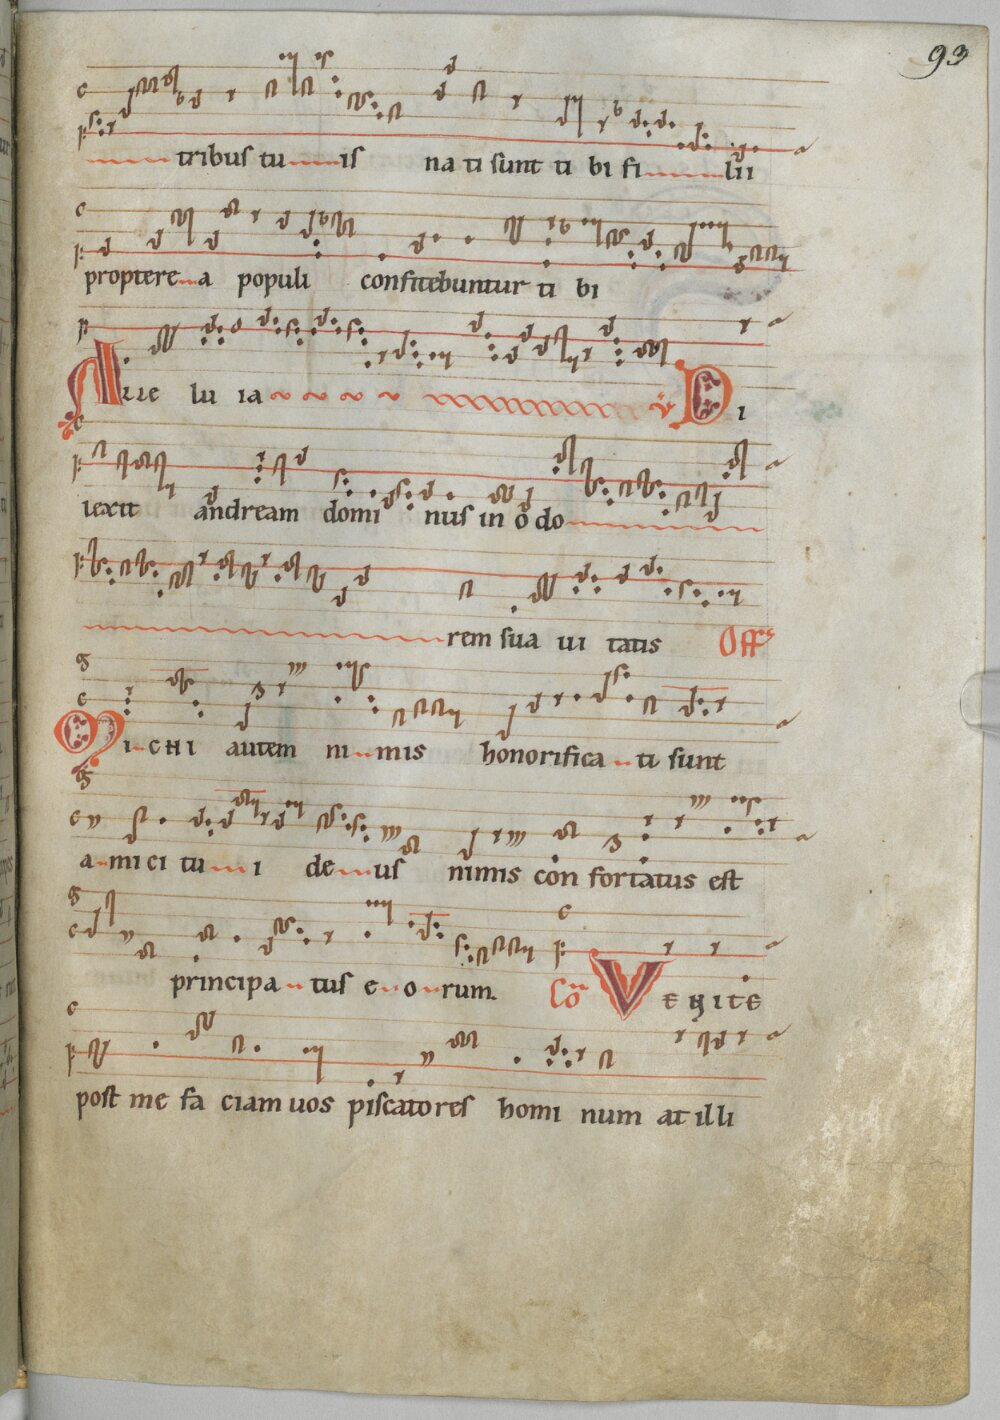 93
tribus tuis nati sunt tibi filii
propterea populi confitebuntur tibi
Alleluia V Di
lexit andream dominus in odo
rem suauitatis Off
Michi autem nimis honorificati sunt
amici tui deus nimis confortatus est
principatus eorum. Co Venite
post me faciam uos piscatores hominum at illi